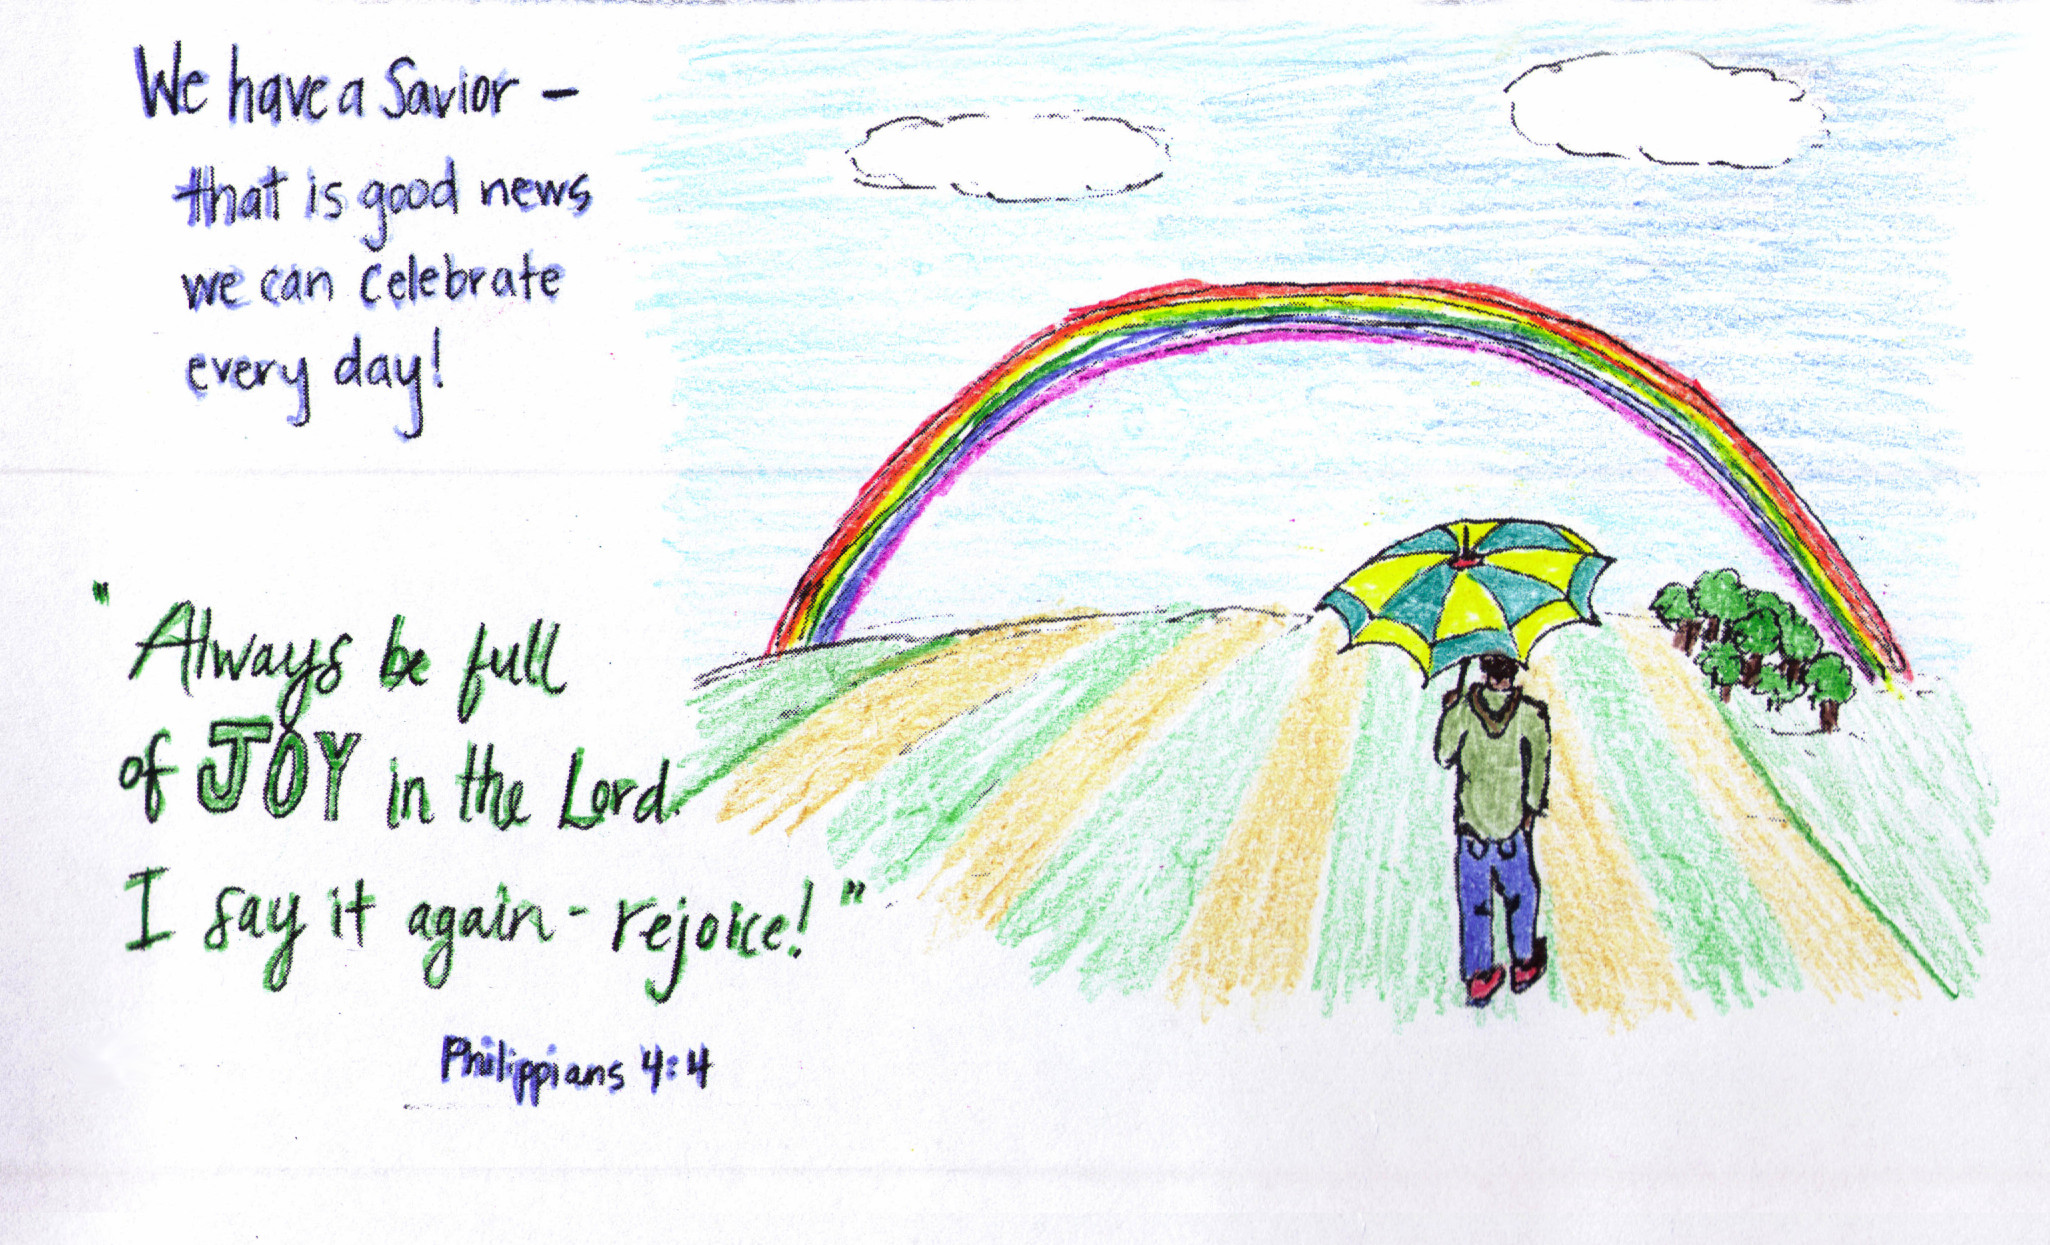 We have a Savior -
that is good news
we can celebrate
every day!
"Always be full
of JOY in the Lord.
I say it again - rejoice!"
Philippians 4:4